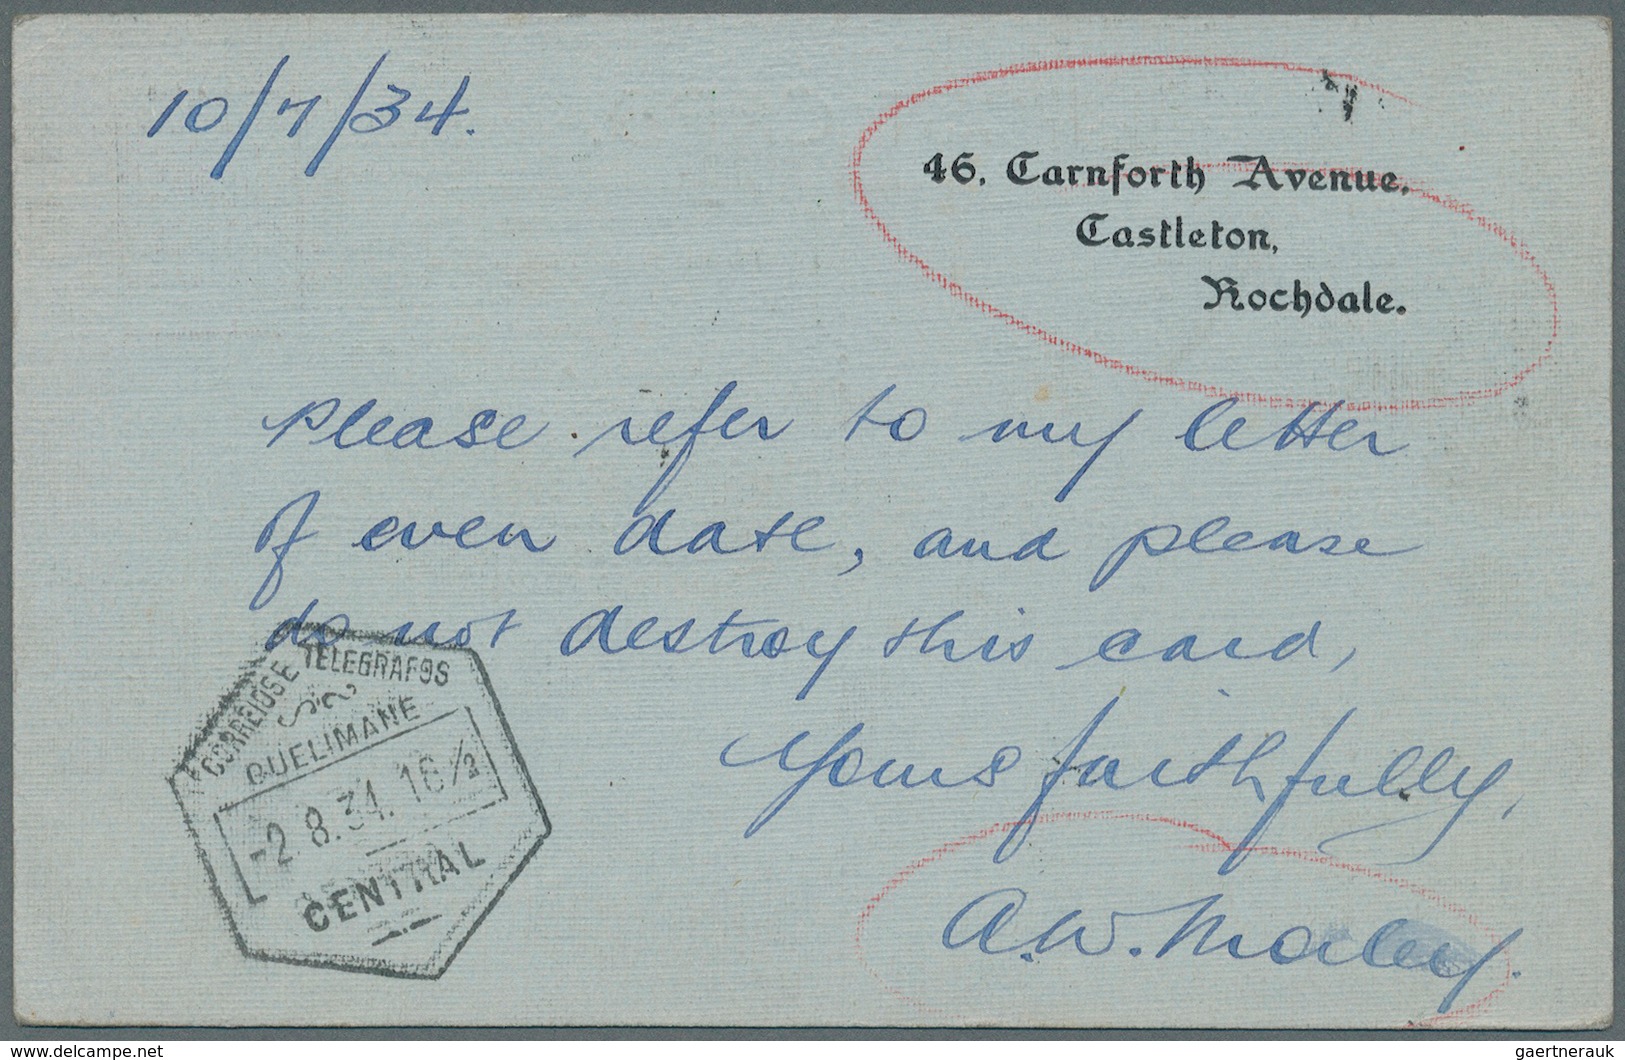 10/7/34.
46, Carnforth Avenue,
Castleton,
Rochdale.
Please refer to my letter
of even date, and please
do not destroy this card,
Yours faithfully,
A.W. Morley.
CORREIOS E TELEGRAFOS
QUELIMANE
-2.8.34.16½
CENTRAL
© www.delcampe.net
gaertnerauk